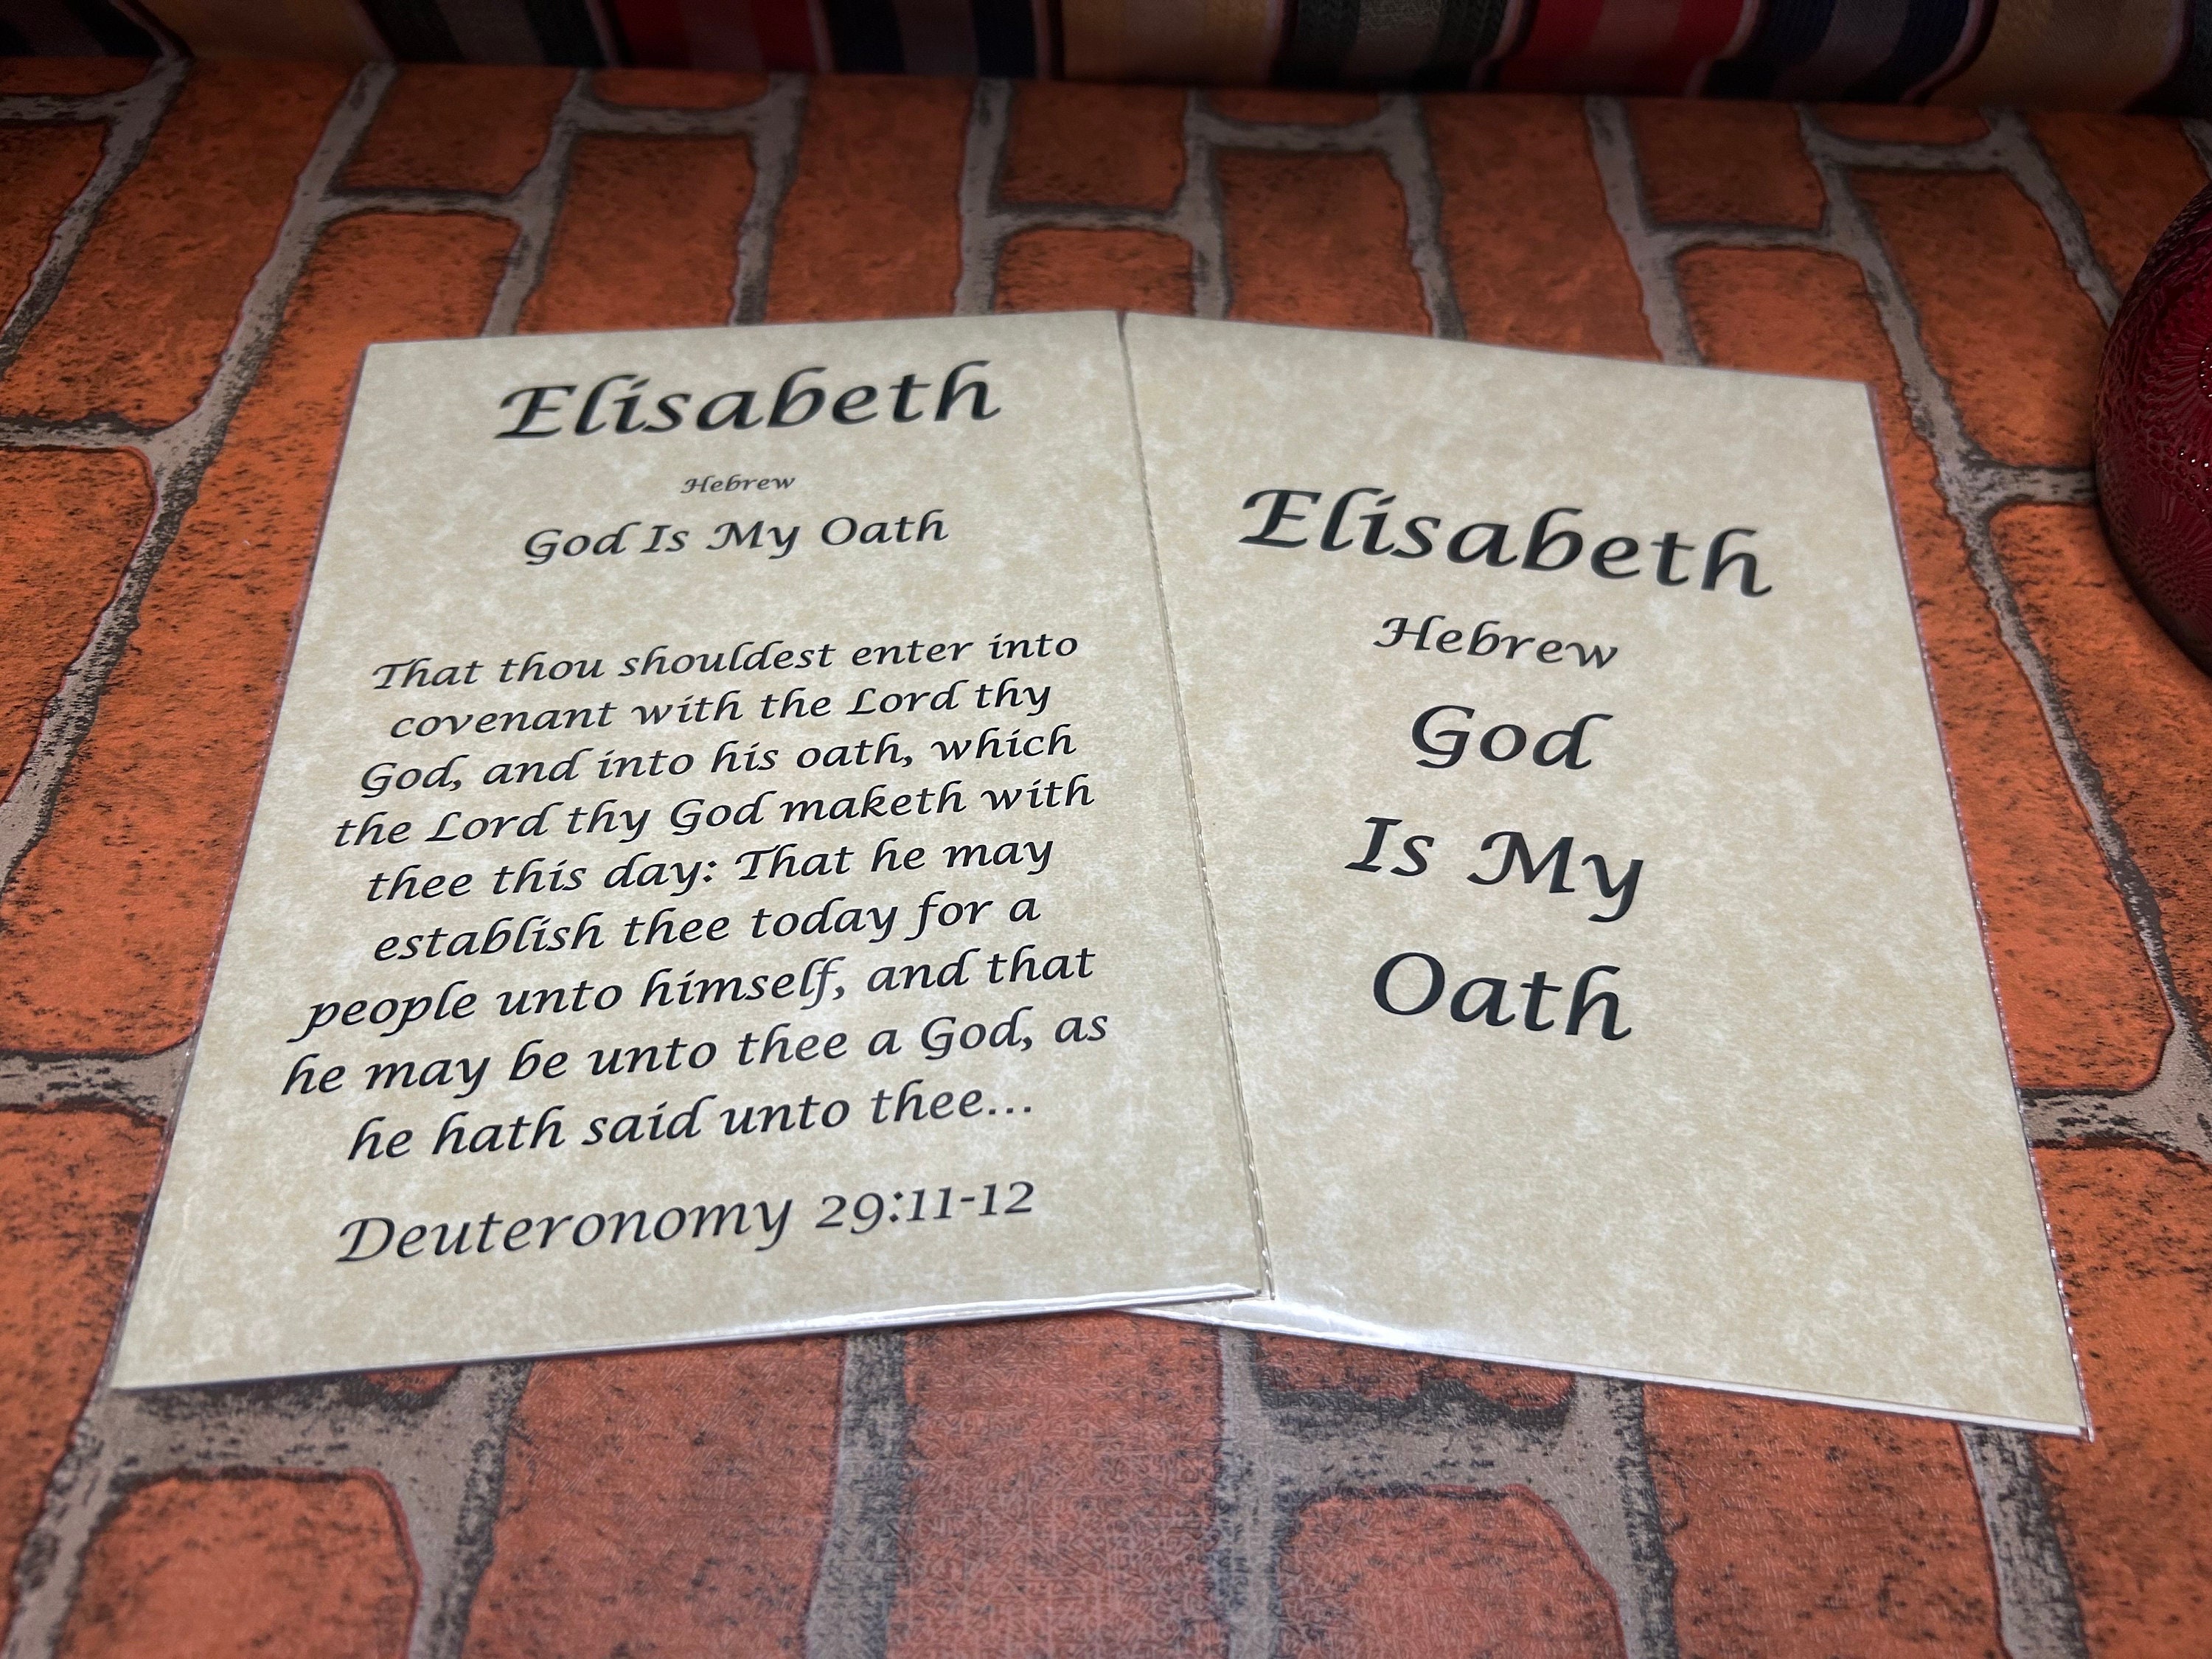 Elisabeth
Hebrew
God Is My Oath
That thou shouldest enter into
covenant with the Lord thy
God, and into his oath, which
the Lord thy God maketh with
thee this day: That he may
establish thee today for a
people unto himself, and that
he may be unto thee a God, as
he hath said unto thee...
Deuteronomy 29:11-12
Elisabeth
Hebrew
God
Is My
Oath